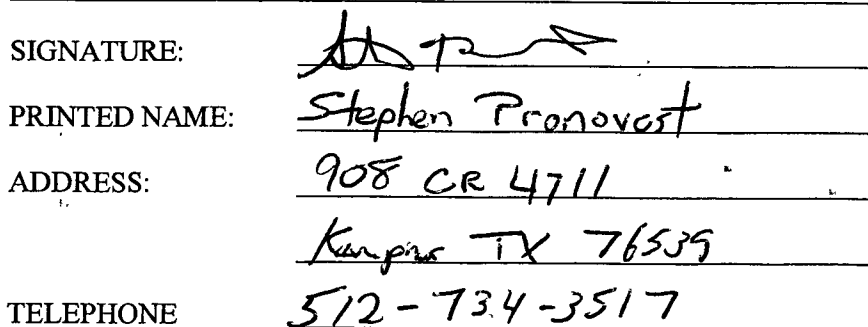 SIGNATURE:
PRINTED NAME: Stephen Pronovost
ADDRESS: 908 CR 4711
TX 76539
TELEPHONE 512-734-3517